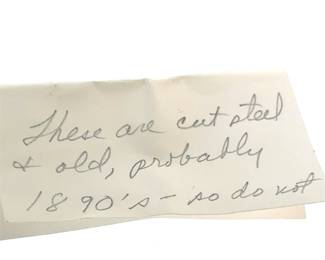 These are cut steel
& old, probably
1890's - so do not